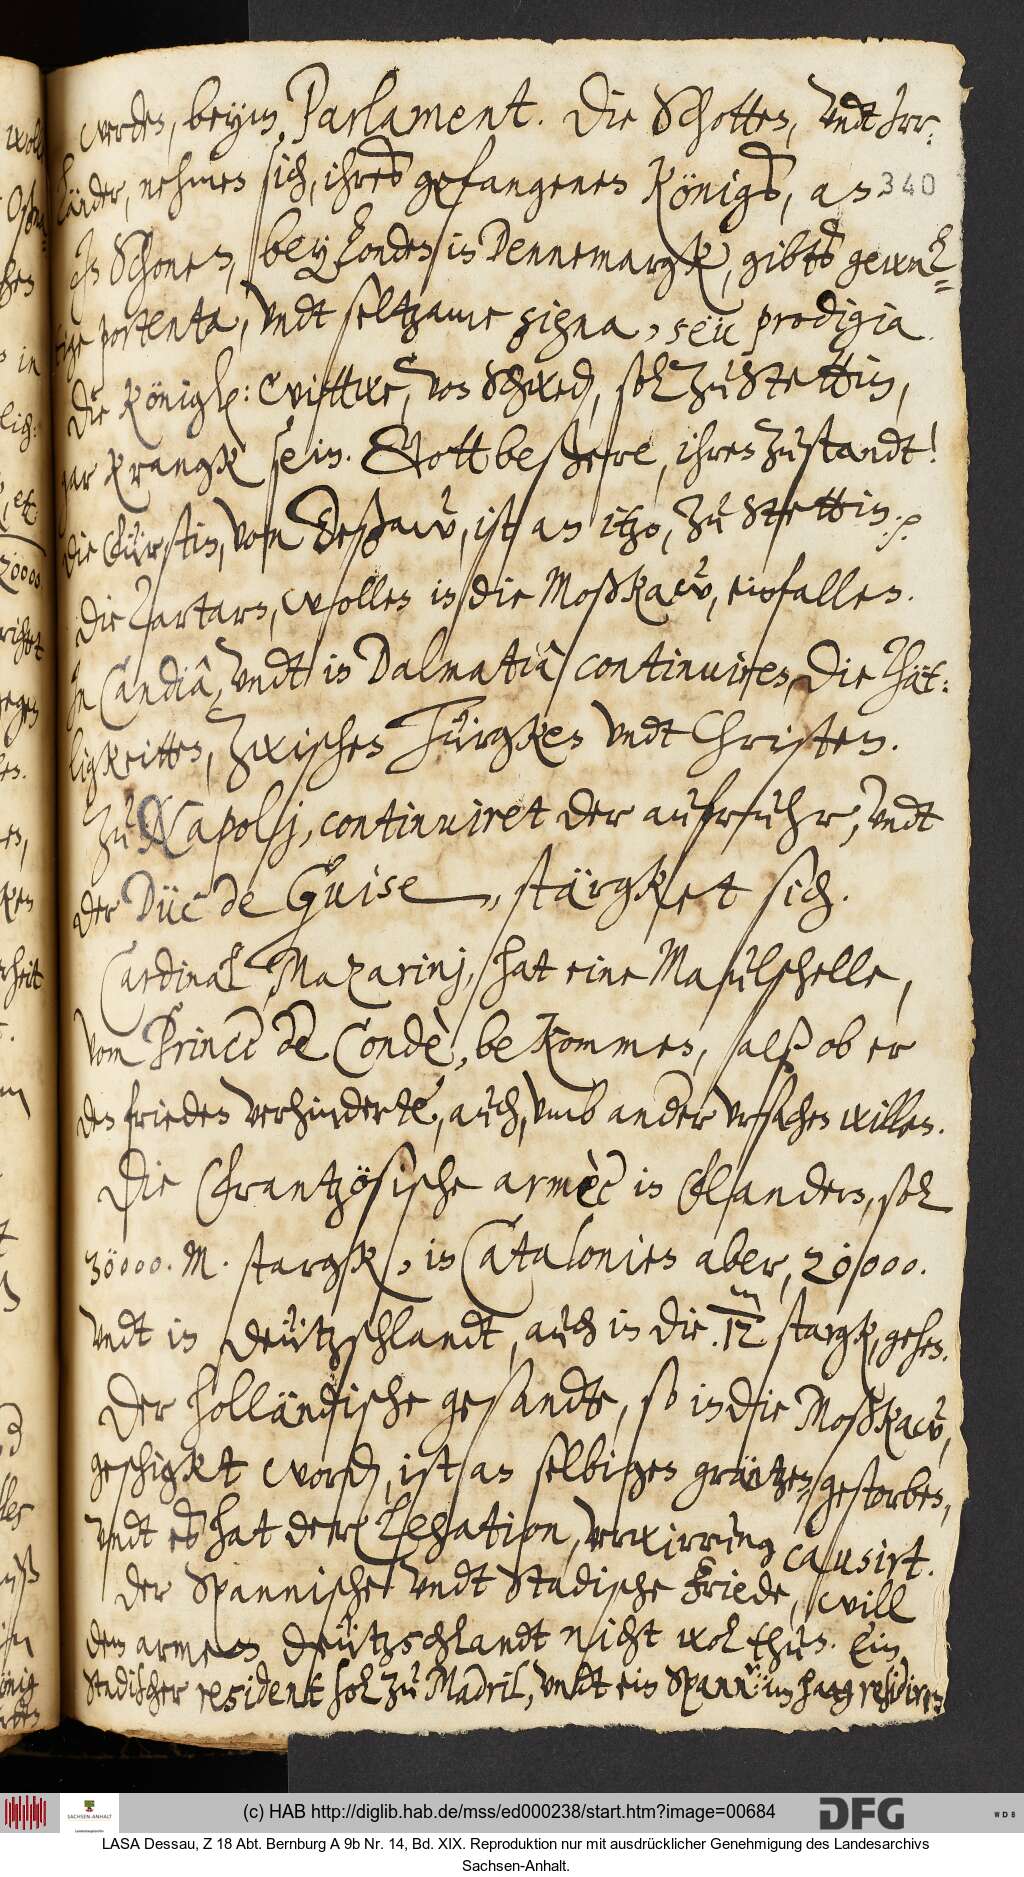 werden, beym Parlament. Die Schotten, vndt Irr¬
länder, nehmen sich, ihres gefangenen Königs, an
340
In Schonen, bey Londen in Dennemargk, gibts gewal¬
tige portenta, vndt seltzame signa, seu prodigia.
Die Königl: Wittwe, von Schwed, sol zu Stettin,
gar krangk sein. Gott beßere, ihren zustandt!
Die Fürstin, vom Deßaw, ist an itzo, zu Stettin. p
Die Tartarn, wollen in die Moßkaw, einfallen.
In Candia, vndt in Dalmatia continuiren, Die Thät¬
ligkeitten, zwischen Türgken vndt Christen.
Zu Napolj, continuiret der aufruhr, vndt
der Duc de Guise, stärgket sich.
Cardinal Mazarinj, hat eine Maulschelle,
vom Prince de Condè, bekommen, alß ob er
den frieden verhinderte, auch, vmb ander vrsachen willen.
Die Frantzösische armèe in Flandern, sol
30000. M. stargk, in Catalonien aber, 20000.
vndt in Deützschlandt, auch in die 12 m stargk, gehen.
Der Holländische gesandte, so in die Moßkaw,
geschigkt worden, ist an selbigen gräntzen, gestorben,
vndt es hat der Legation, verwirrung causirt.
Der Spannische vndt Stadische Friede, will
dem armen Deützschlandt nicht wol thun. Ein
Stadischer resident sol zu Madril, vndt ein Spannischer im Haag residiren
(c) HAB http://diglib.hab.de/mss/ed000238/start.htm?image=00684
DFG
WDB
SACHSEN-ANHALT
LASA Dessau, Z 18 Abt. Bernburg A 9b Nr. 14, Bd. XIX. Reproduktion nur mit ausdrücklicher Genehmigung des Landesarchivs
Sachsen-Anhalt.